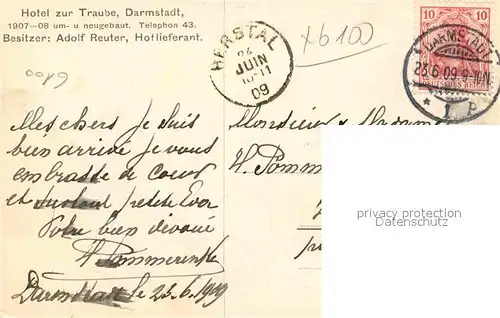 Hotel zur Traube, Darmstadt,
1907—08 um- u. neugebaut. Telephon 43.
Besitzer: Adolf Reuter, Hoflieferant.
HERSTAL
24
JUIN
10-11
09
xb100
10 10
DEUTSCHES REICH
DARMSTADT
23.6.09.
* 1 P
Mes chers Je suis
bien arrivé je vous
embrasse de coeur
et surtout petite Eva
Votre bien dévoué
H Pommerenke
Darmstadt le 23.6.1909
Monsieur &
H. Pommer
privacy protection
Datenschutz